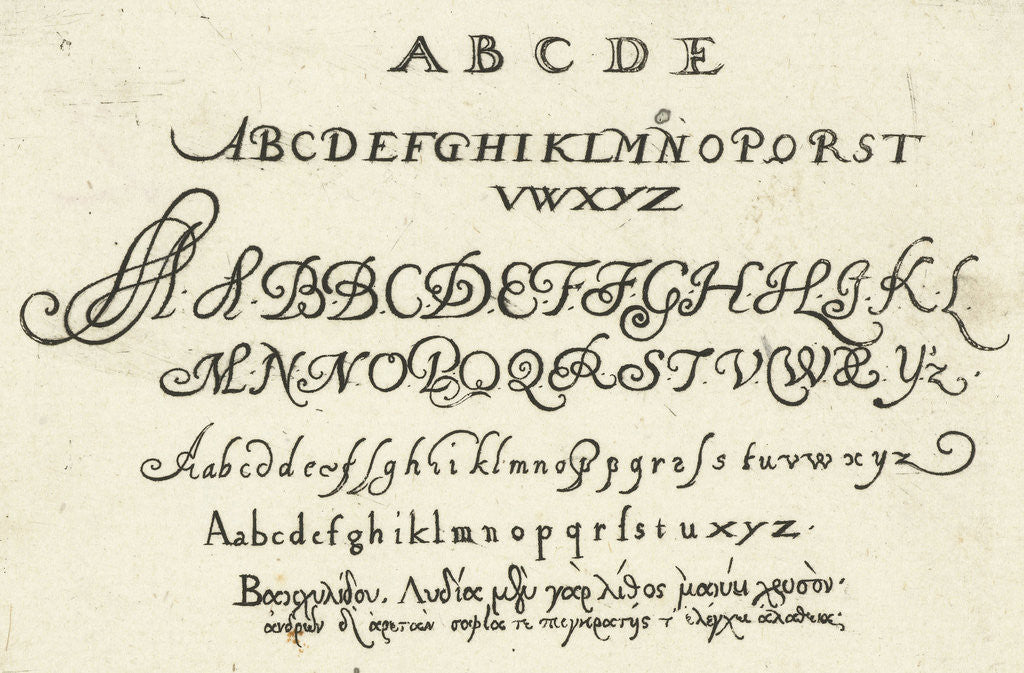 A B C D E
ABCDEFGHIKLMNOPQRST
VWXYZ
A.A.B.B.C.D.E.F.F.G.H.H.I.K.L
M.N.N.O.P.Q.Q.R.S.T.V.W.Æ.Y.z.
Aabcddeefſghhiklmnoppqrsſs tuvw x y z
Aabcdefghiklmnopqrſstuxyz.
Βακχυλίδου. Λυδία μὲν γὰρ λίθος μανύει χρυσὸν·
ἀνδρῶν δ' ἀρετὰν σοφία τε παγκρατής τ' ἐλέγχει ἀλάθεια;